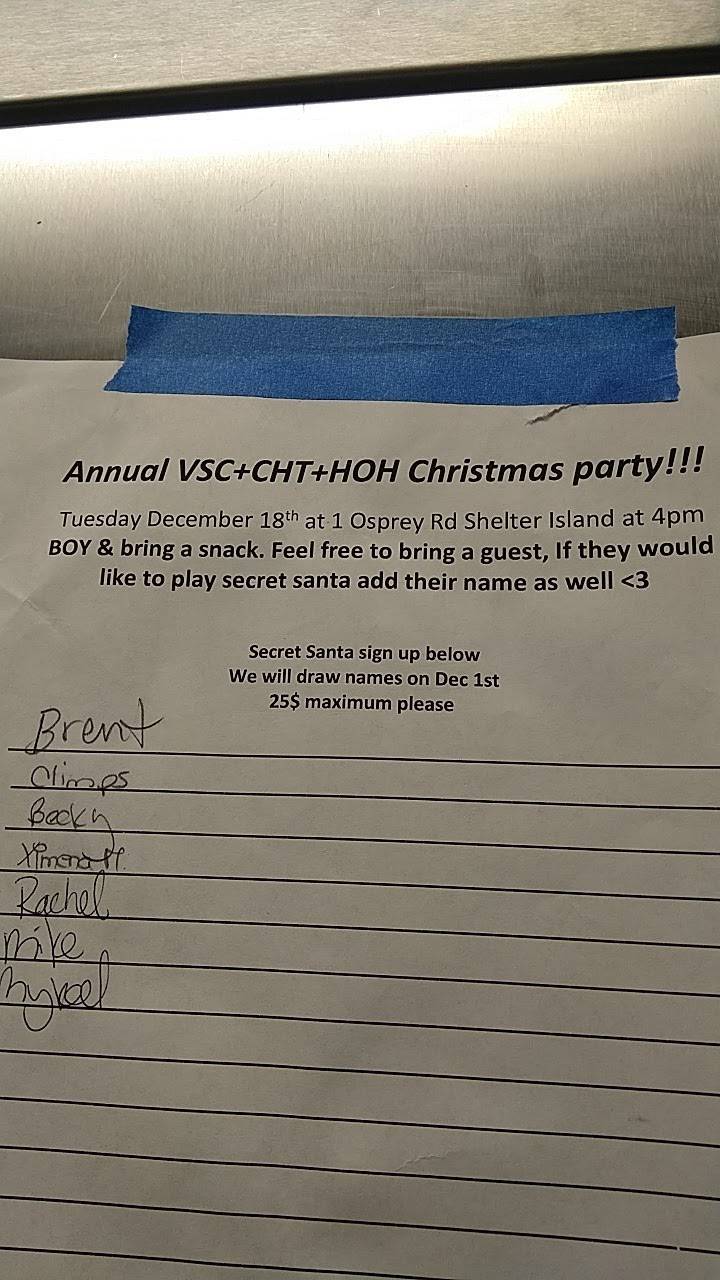 Annual VSC+CHT+HOH Christmas party!!!
Tuesday December 18th at 1 Osprey Rd Shelter Island at 4pm
BOY & bring a snack. Feel free to bring a guest, If they would
like to play secret santa add their name as well <3
Secret Santa sign up below
We will draw names on Dec 1st
25$ maximum please
Brent
Climps
Becky
Ximena
Rachel
Mike